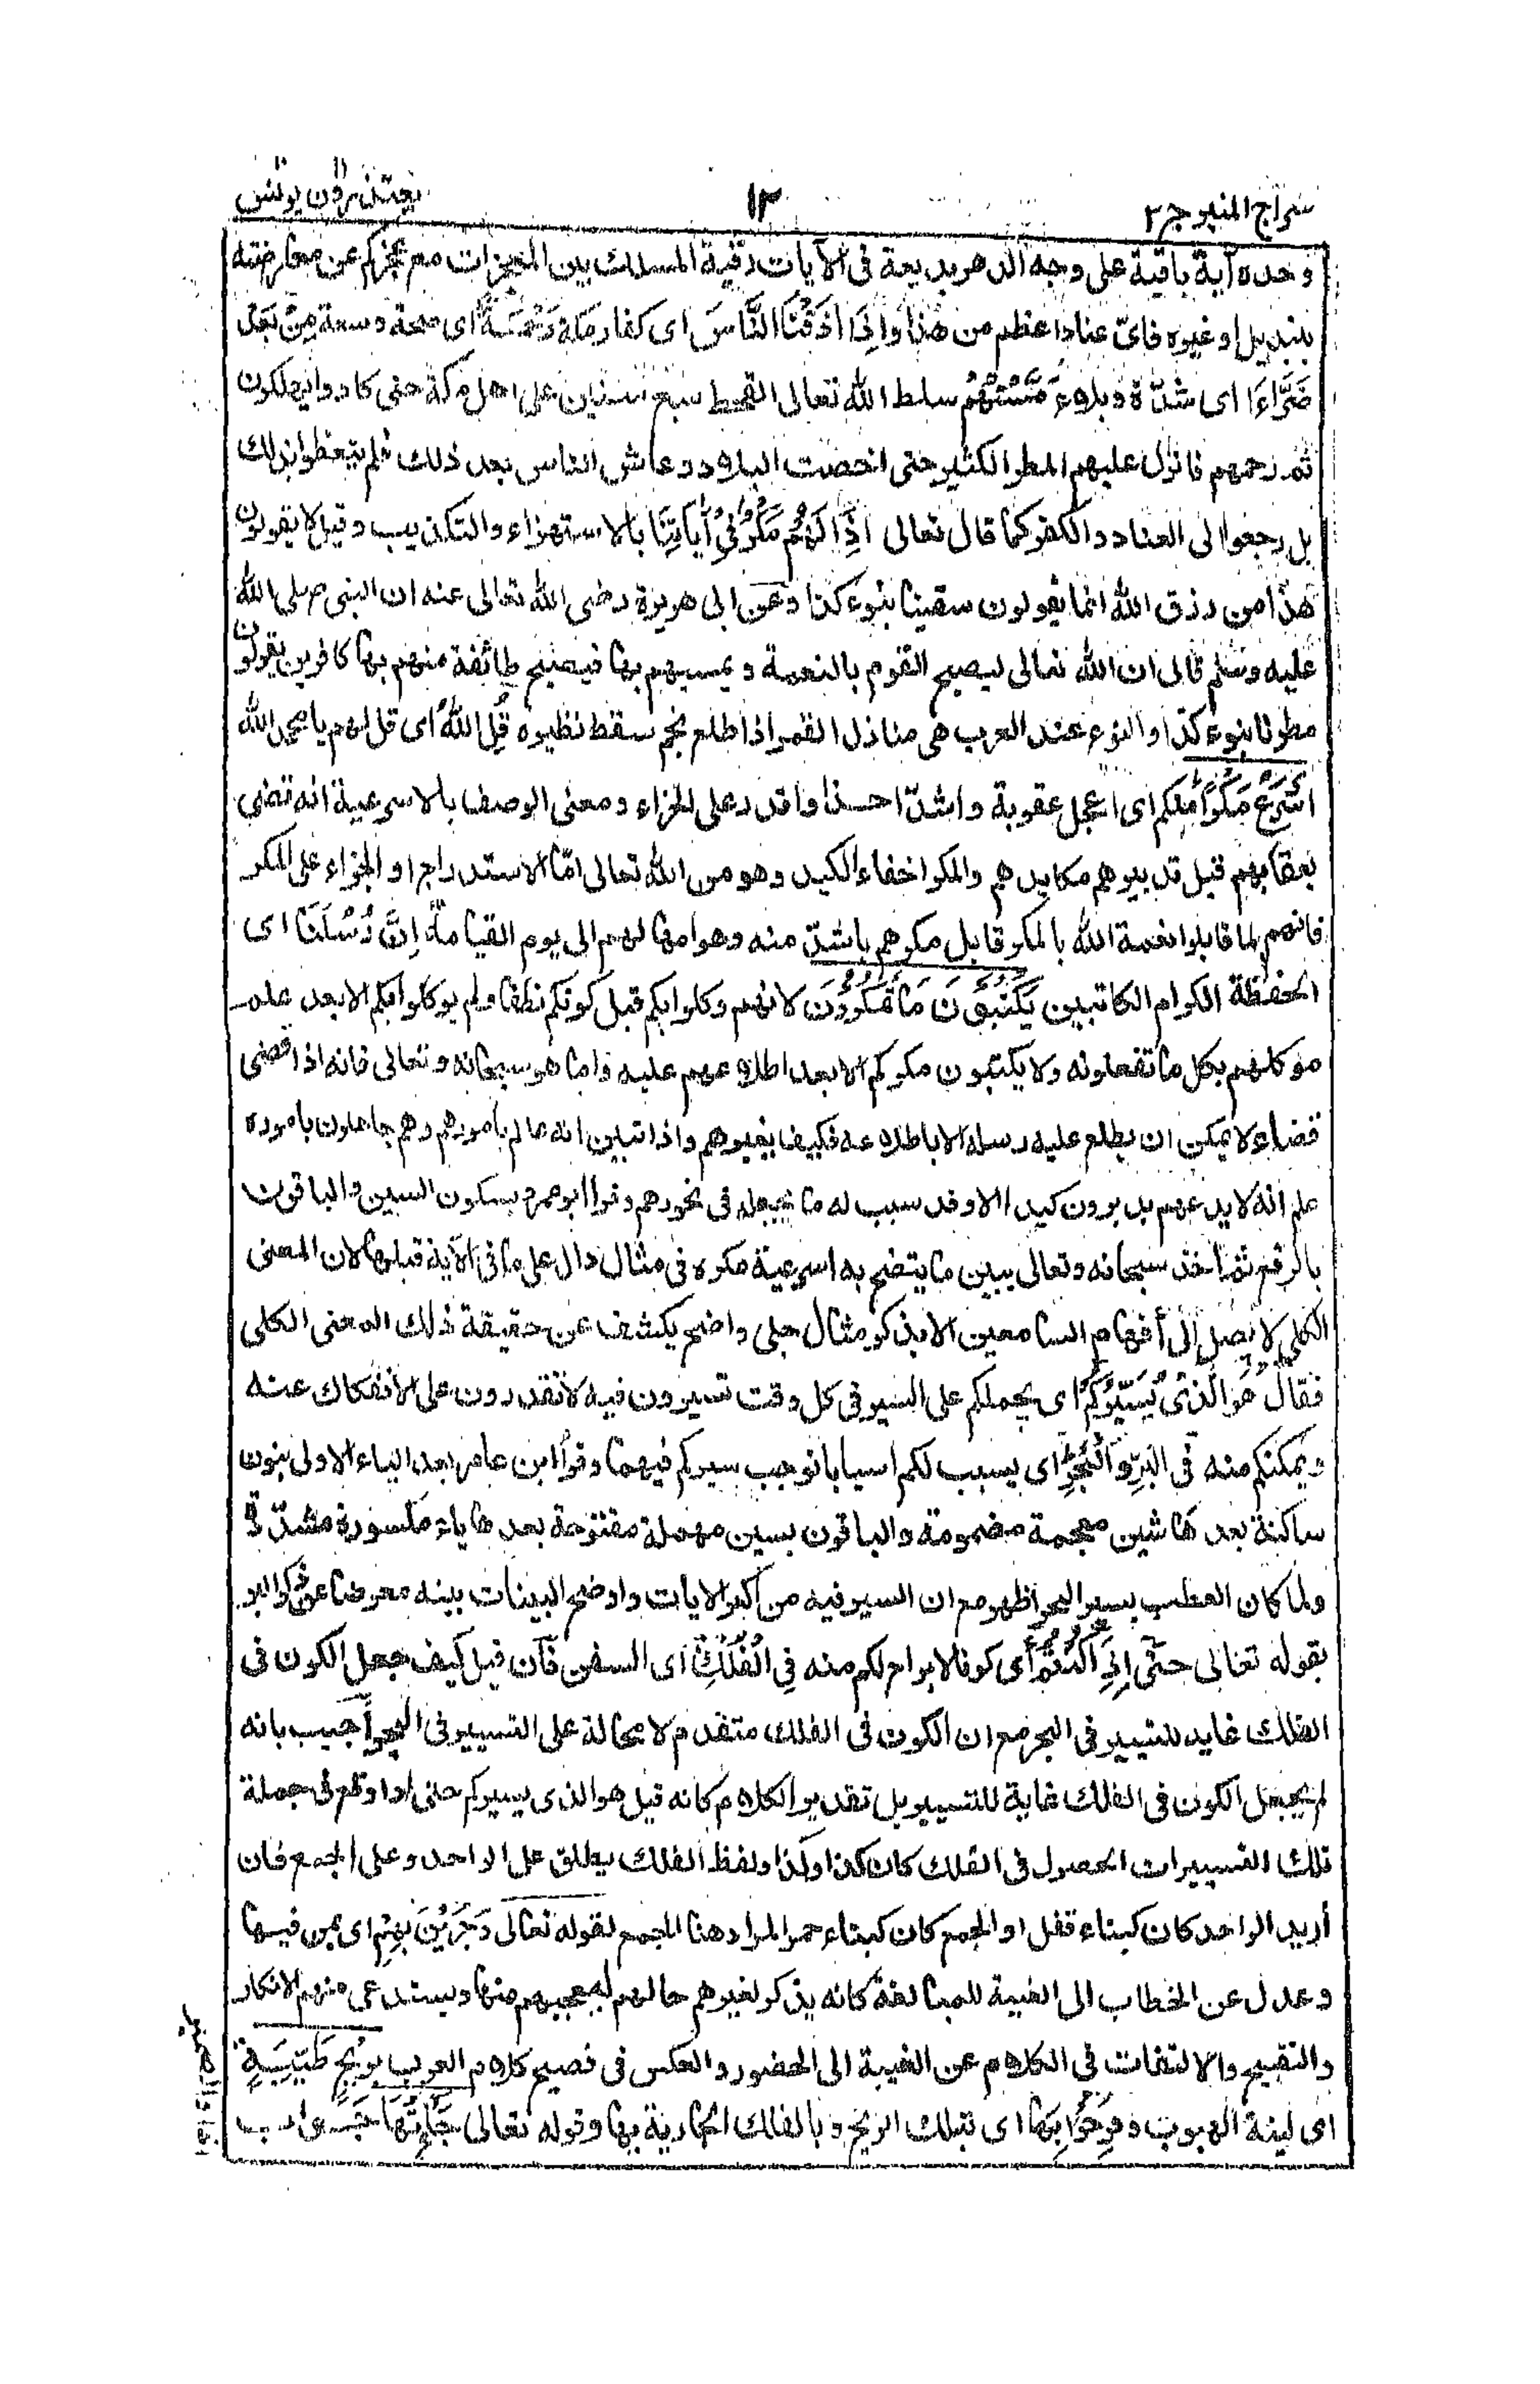 سراج المنير جز٢
١٣
يعتذرون ١١ يونس ١٠
وحده آية باقية على وجه الدهر بديعة فى الآيات دقيقة المسلك بين المعجزات مع عجزكم عن معارضته
بتبديل او غيره فاىّ عناد اعظم من هذا وَاِذَا اَذَقْنَا النَّاسَ اى كفار مكة رَحْمَةً اى صحة وسعة مِنْ بَعْدِ
ضَرَّاءَ اى شدّة وبلاء مَسَّتْهُمْ سلط الله تعالى القحط سبع سنين على اهل مكة حتى كادوا يهلكون
ثم رحمهم فانزل عليهم المطر الكثير حتى اخصبت البلاد وعاش الناس بعد ذلك فلم يتعظوا بذلك
بل رجعوا الى العناد والكفر كما قال تعالى اِذَا لَهُمْ مَكْرٌ فِىْ آيَاتِنَا بالاستهزاء والتكذيب وقيل لا يقولون
هذا من رزق الله انما يقولون سقينا بنوء كذا وعن ابى هريرة رضى الله تعالى عنه ان النبى صلى الله
عليه وسلم قال ان الله تعالى ليصبح القوم بالنعمة ويمسيهم بها فيصبح طائفة منهم بها كافرين يقولون
مطرنا بنوء كذا والنوء عند العرب هى منازل القمر اذا طلع نجم سقط نظيره قُلِ اللهُ اى قل لهم يا محمد الله
اَسْرَعُ مَكْرًا منكم اى اعجل عقوبة واشدّ اخذا واقدر على الجزاء ومعنى الوصف بالاسرعية انه قضى
بعقابهم قبل تدبيرهم مكايدهم والمكر اخفاء الكيد وهو من الله تعالى امّا الاستدراج او الجزاء على المكر
فانهم لما قابلوا نعمة الله بالمكر قابل مكرهم باشدّ منه وهو امهالهم الى يوم القيامة اِنَّ رُسُلَنَا اى
الحفظة الكرام الكاتبين يَكْتُبُوْنَ مَا تَمْكُرُوْنَ لانهم وكلوا بكم قبل كونكم نطفا ولم يوكلوا بكم الا بعد علم
موكلهم بكل ما تفعلونه ولا يكتبون مكركم الا بعد اطلاعهم عليه واما هو سبحانه وتعالى فانه اذا قضى
قضاء لا يمكن ان يطلع عليه رسله الا باطلاعه فكيف بغيرهم واذا تبين انه عالم بامورهم وهم جاهلون باموره
علم انه لا يدعهم يدبرون كيدا الا وقد سبب له ما يجعله فى نحورهم وقرأ ابو عمرو بسكون السين والباقون
بالرفع ثم أخذ سبحانه وتعالى يبين ما يتضح به اسرعية مكره فى مثال دال على ما فى الآية قبلها لان المعنى
الكلى لا يصل إلى أفهام السامعين الا بذكر مثال جلى واضح يكشف عن حقيقة ذلك المعنى الكلى
فقال هُوَ الَّذِىْ يُسَيِّرُكُمْ اى يحملكم على السير فى كل وقت تسيرون فيه لا تقدرون على الانفكاك عنه
ويمكنكم منه فى الْبَرِّ وَالْبَحْرِ اى يسبب لكم اسبابا توجب سيركم فيهما وقرأ ابن عامر بعد الياء الاولى بنون
ساكنة بعدها شين معجمة مضمومة والباقون بسين مهملة مفتوحة بعدها ياء مكسورة مشدّدة
ولما كان العطب بسير البحر اظهر مع ان السير فيه من اكبر الآيات واوضح البينات بينه معرضا عن ذكر البر
بقوله تعالى حَتَّى اِذَا كُنْتُمْ أى كونا لا براح لكم منه فِى الْفُلْكِ اى السفن فان قيل كيف جعل الكون فى
الفلك غاية للتسيير فى البحر مع ان الكون فى الفلك متقدم لا محالة على التسيير فى البحر أجيب بانه
لم يجعل الكون فى الفلك غاية للتسيير بل تقدير الكلام كانه قيل هو الذى يسيركم حتى اذا وقع فى جملة
تلك التسييرات الحصول فى الفلك كان كذا وكذا ولفظ الفلك يطلق على الواحد وعلى الجمع فان
أريد الواحد كان كبناء قفل او الجمع كان كبناء حمر المراد هنا الجمع لقوله تعالى وَجَرَيْنَ بِهِمْ اى بمن فيها
وعدل عن الخطاب الى الغيبة للمبالغة كانه يذكر لغيرهم حالهم ليعجبهم منها ويستدعى منهم الانكار
والتقبيح والالتفات فى الكلام عن الغيبة الى الحضور والعكس فى فصيح كلام العرب بِرِيْحٍ طَيِّبَةٍ
اى لينة الهبوب وَفَرِحُوْا بِهَا اى بتلك الريح وبالفلك الجارية بها وقوله تعالى جَاءَتْهَا جواب